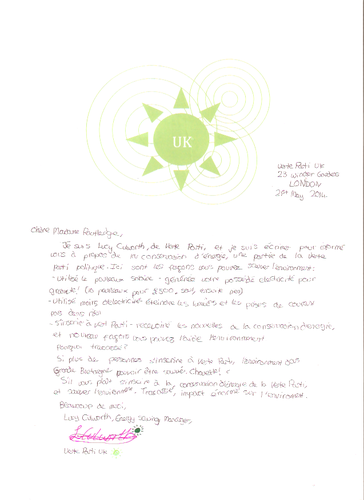 UK
Verte Parti UK
23 Winder Gardens
LONDON
20th May 2014
Chère Madame Routledge,
Je suis Lucy Cutworth, de Verte Parti, et je suis écrire pour
vous à propos de la conservation d'énergie, une partie de la Verte
Parti politique. Ici sont les façons vous pouvez l'environnement:
- Utilisé le puissance solaire - générée votre électricité pour
gratuit! (6 panneaux pour £500, sans
- Utilisé moins d'électricité éteindre les lumières et les prises de courant
- S'inscrire à Vert Parti - recevoir les nouvelles de la conservation d'énergie,
et nouveaux façons vous pouvez l'environnement
Pourquoi
Si plus de personnes s'inscrire à Verte Parti, l'environnement dans
Grande Bretagne pouvoir être sauvé. Chouette!
S'il vous plaît s'inscrire à la conservation d'énergie de la Verte Parti,
et sauver l'environment. impact énorme sur l'environment.
Beaucoup de
Lucy Cutworth, Energy Saving Manager,
Verte Parti UK